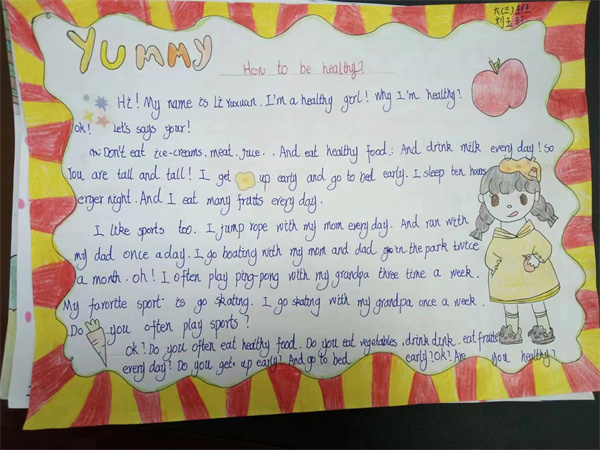 YUMMY
How to be healthy?
Hi! My name is Li Yuxuan. I'm a healthy girl! Why I'm healthy?
Ok! Let's says your!
Don't eat ice-creams. meat. juce.. And eat healthy food. And drink milk every day! so
You are tall and tall! I get up early and go to bed early. I sleep ten hours
erger night. And I eat many fruits every day.
I like sports too. I jump rope with my mom every day. And run with
my dad once a day. I go boating with my mom and dad in the park twice
a month. oh! I often play ping-pong with my grandpa three time a week.
My favorite sport is go skating. I go skating with my grandpa once a week.
Do you often play sports?
Ok? Do you often eat healthy food. Do you eat vegetables, drink drink. eat fruits
every day? Do you get up early? And go to bed early? Ok? Are you healthy?